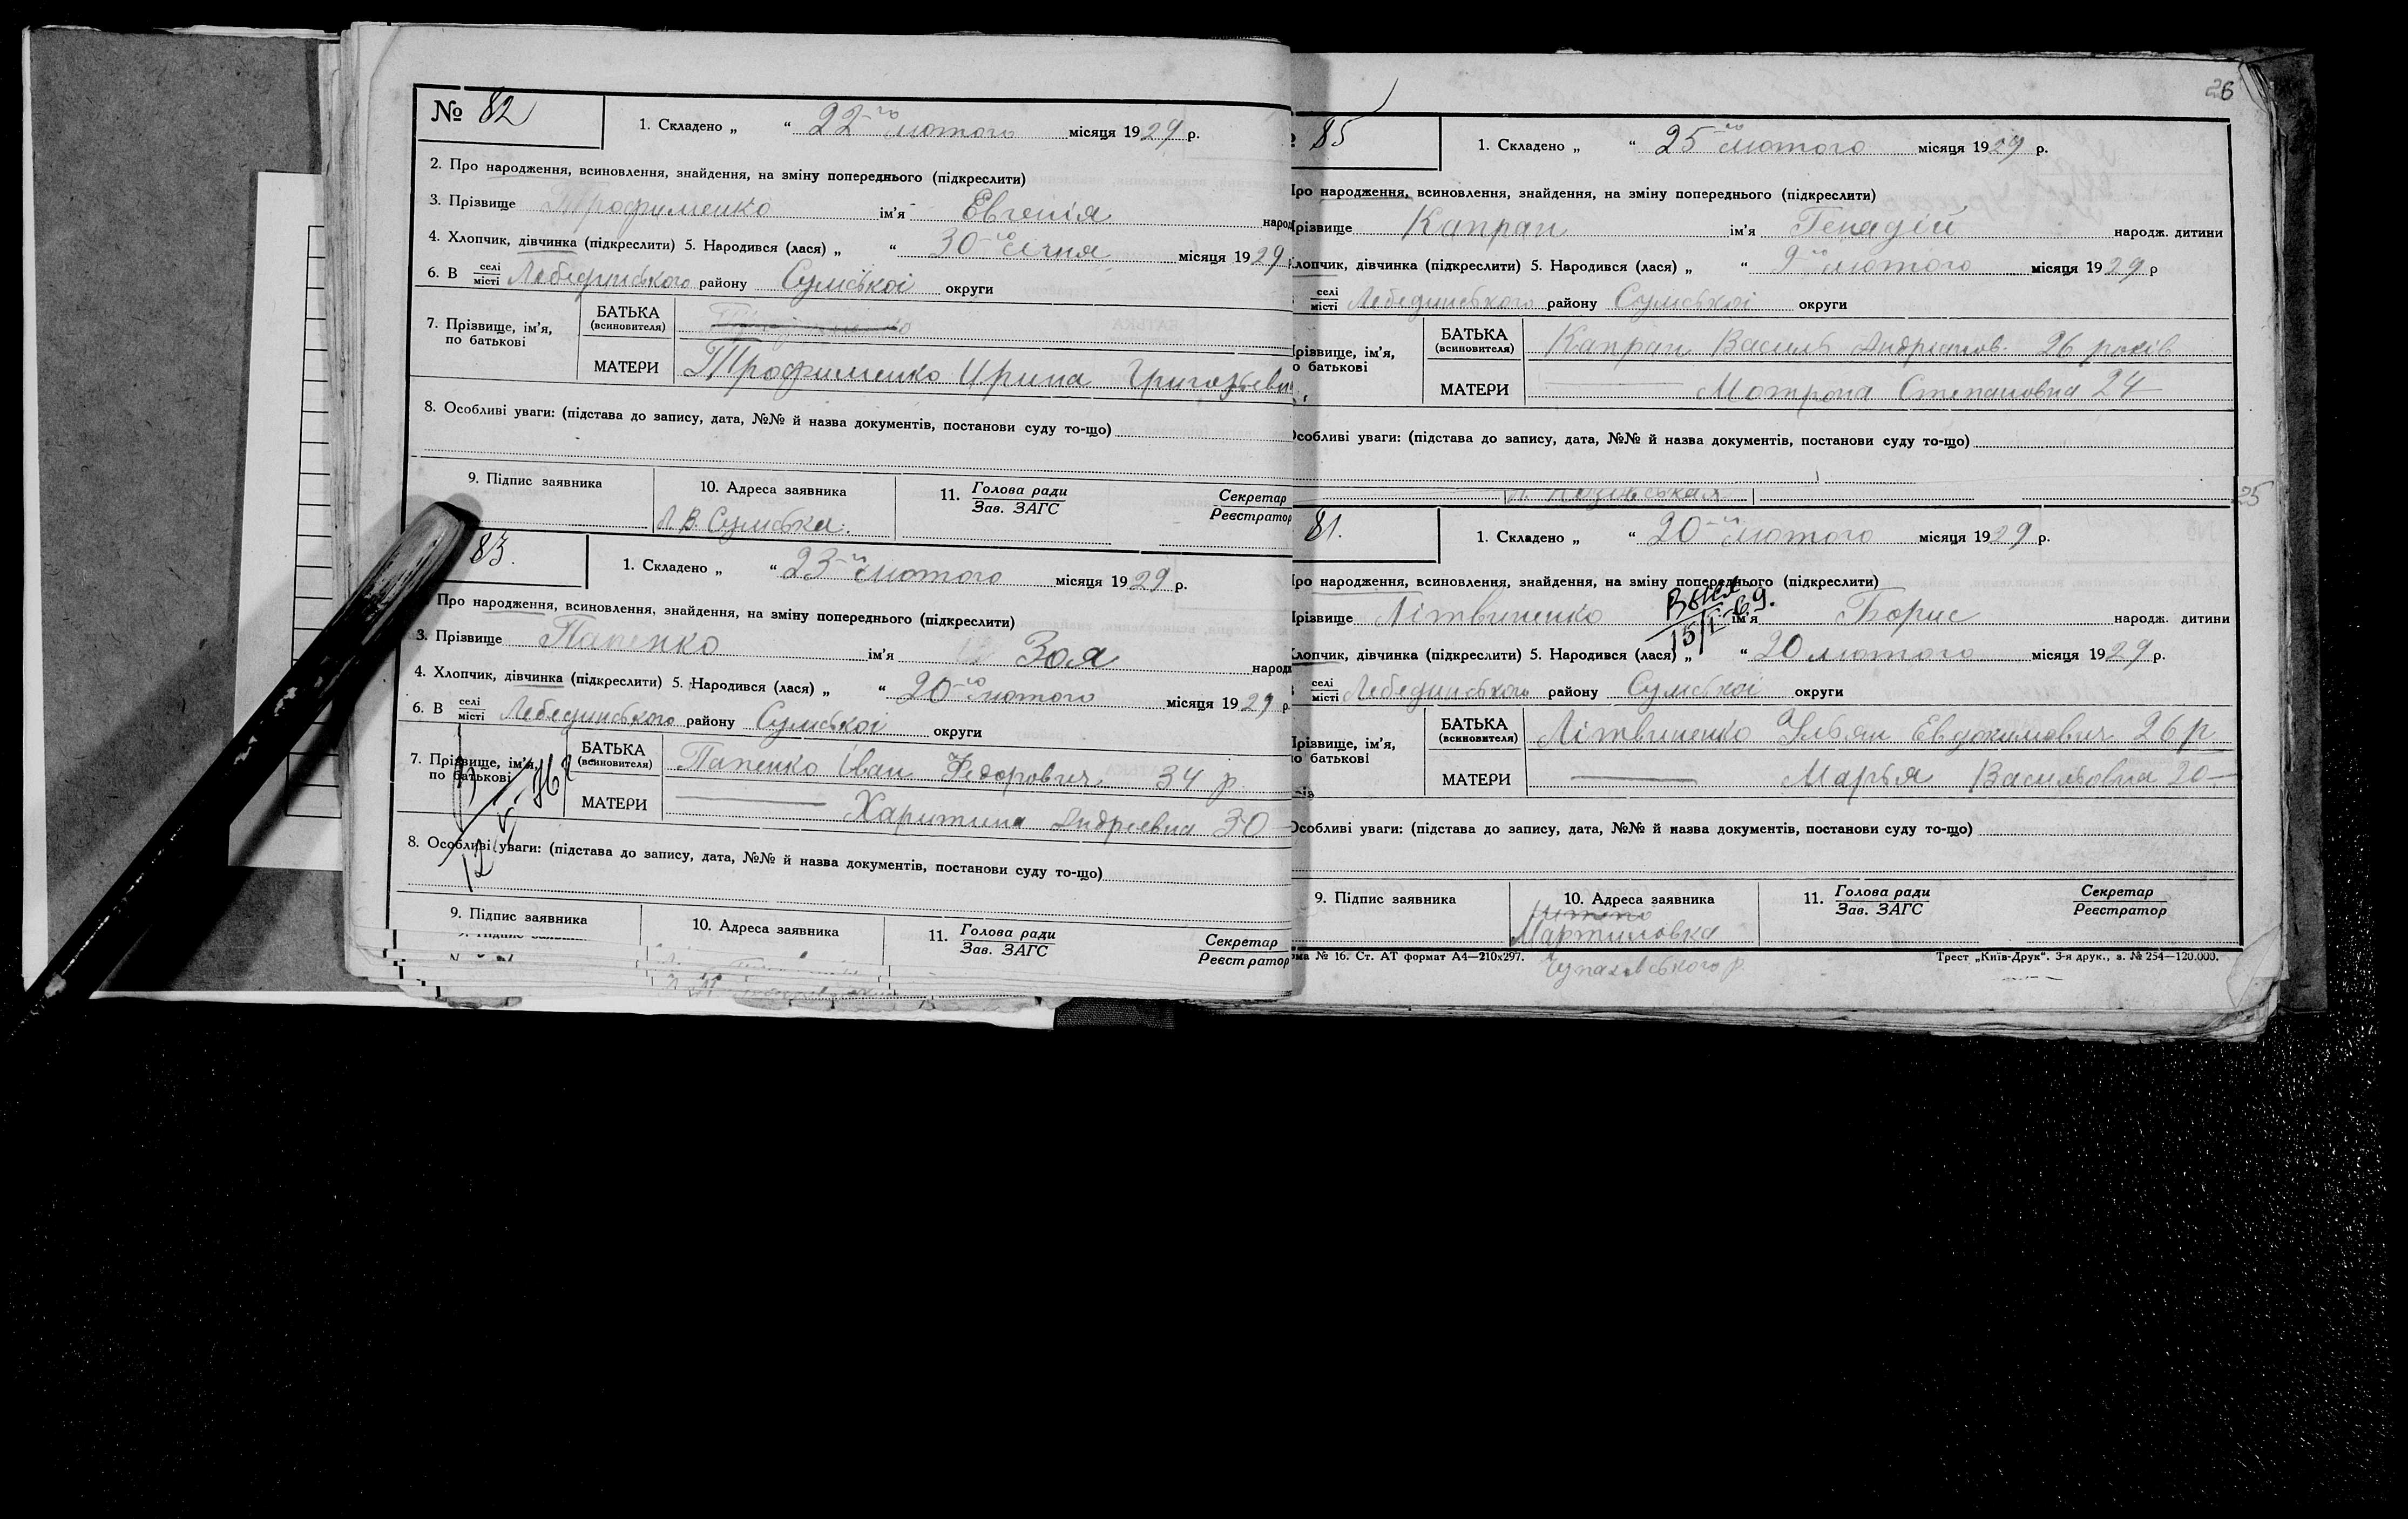 № 82
1. Складено „ “ 22-го лютого місяця 1929 р.
2. Про народження, всиновлення, знайдення, на зміну попереднього (підкреслити)
3. Прізвище Трофименко ім'я Евгенія народ
4. Хлопчик, дівчинка (підкреслити) 5. Народився (лася) „ “ 30-го січня місяця 1929 р
6. В селі місті Лебединського району Сумської округи
7. Прізвище, ім'я, по батькові
БАТЬКА (всиновителя)
МАТЕРИ Трофименко Ирина Григорьевн
8. Особливі уваги: (підстава до запису, дата, №№ й назва документів, постанови суду то-що)
9. Підпис заявника 10. Адреса заявника 11. Голова ради Зав. ЗАГС Секретар Реєстратор
Л. В. Сумська.
83.
1. Складено „ “ 23-го лютого місяця 1929 р.
Про народження, всиновлення, знайдення, на зміну попереднього (підкреслити)
3. Прізвище Папенко ім'я Зоя народ
4. Хлопчик, дівчинка (підкреслити) 5. Народився (лася) „ “ 20-го лютого місяця 1929 р.
6. В селі місті Лебединського району Сумської округи
7. Прізвище, ім'я, по батькові
БАТЬКА (всиновителя) Папенко Іван Федорович 34 р.
МАТЕРИ — Харитина Андреевна 30 —
8. Особливі уваги: (підстава до запису, дата, №№ й назва документів, постанови суду то-що)
9. Підпис заявника 10. Адреса заявника 11. Голова ради Зав. ЗАГС Секретар Реєстратор
26
85
1. Складено „ “ 25-го лютого місяця 1929 р.
Про народження, всиновлення, знайдення, на зміну попереднього (підкреслити)
Прізвище Капран ім'я Генадій народж. дитини
Хлопчик, дівчинка (підкреслити) 5. Народився (лася) „ “ 9-го лютого місяця 1929 р
селі місті Лебединського району Сумської округи
Прізвище, ім'я, по батькові
БАТЬКА (всиновителя) Капран Василь Андріанов. 26 років
МАТЕРИ — Мотрона Степановна 24 —
Особливі уваги: (підстава до запису, дата, №№ й назва документів, постанови суду то-що)
25
81.
1. Складено „ “ 20-го лютого місяця 1929 р.
Про народження, всиновлення, знайдення, на зміну попереднього (підкреслити)
Прізвище Літвиненко ім'я Борис народж. дитини
15/I-69.
Хлопчик, дівчинка (підкреслити) 5. Народився (лася) „ “ 20 лютого місяця 1929 р.
селі місті Лебединського району Сумської округи
Прізвище, ім'я, по батькові
БАТЬКА (всиновителя) Літвиненко Ульян Евдокимович 26 р
МАТЕРИ — Марья Васильовна 20 —
Особливі уваги: (підстава до запису, дата, №№ й назва документів, постанови суду то-що)
9. Підпис заявника 10. Адреса заявника 11. Голова ради Зав. ЗАГС Секретар Реєстратор
Мартиловка
Чупахівського р.
рма № 16. Ст. АТ формат А4—210х297. Трест „Київ-Друк“. 3-я друк., з. № 254—120.000.